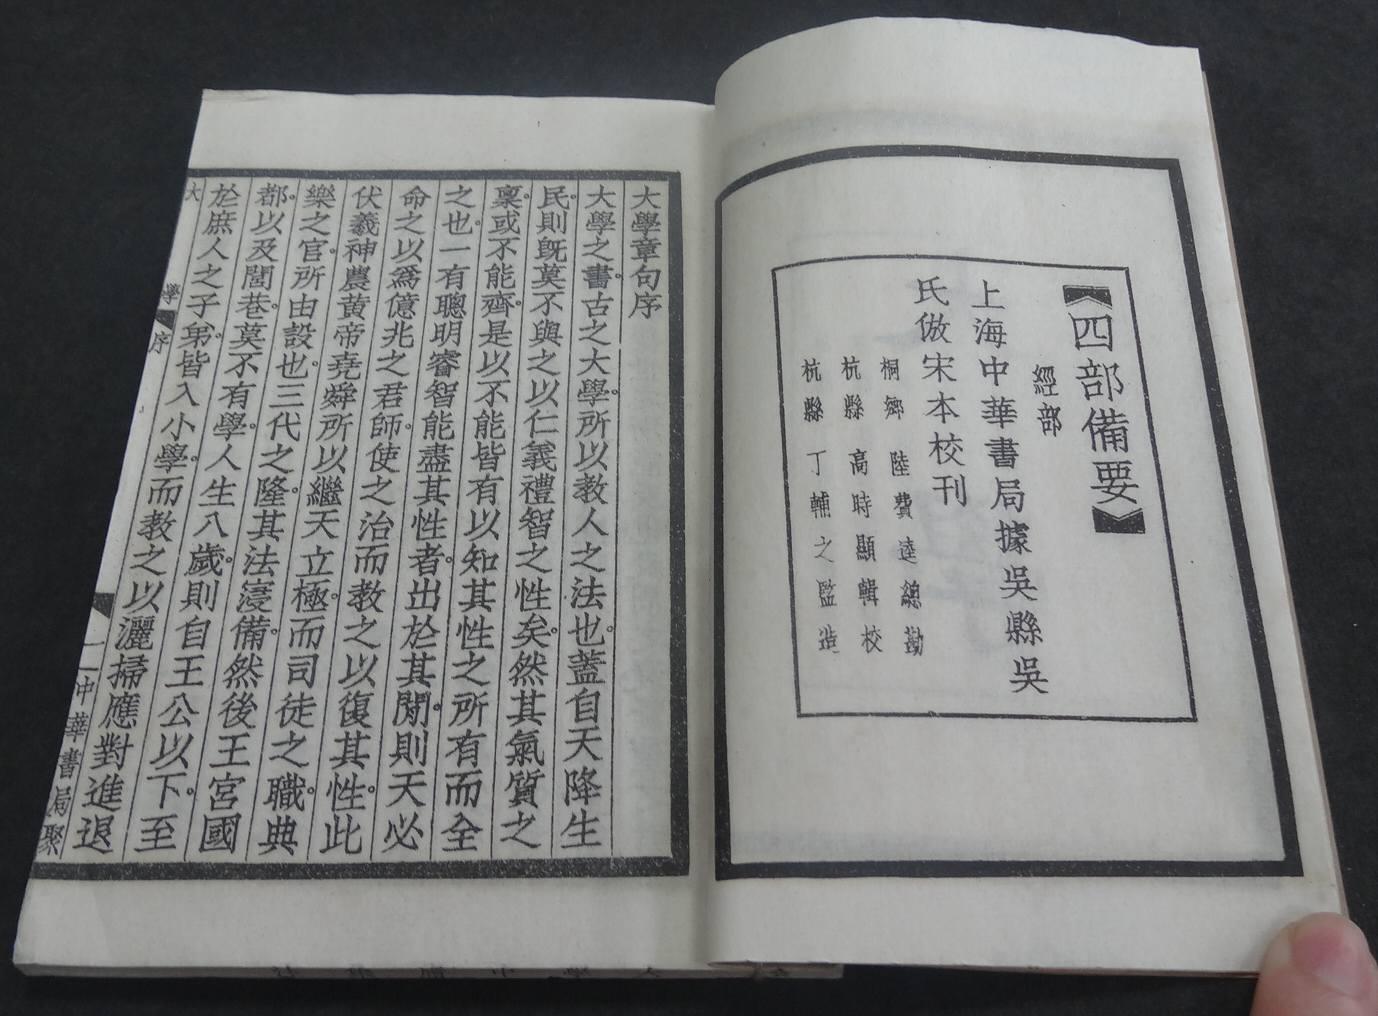 四部備要
經部
上海中華書局據吳縣吳
氏倣宋本校刊
桐鄉 陸費逵總勘
杭縣 高時顯輯校
杭縣 丁輔之監造
大學章句序
大學之書。古之大學。所以教人之法也。蓋自天降生
民。則旣莫不與之以仁義禮智之性矣。然其氣質之
稟。或不能齊。是以不能皆有以知其性之所有而全
之也。一有聰明睿智能盡其性者。出於其閒。則天必
命之以爲億兆之君師。使之治而教之以復其性。此
伏羲神農黃帝堯舜所以繼天立極。而司徒之職。典
樂之官。所由設也。三代之隆。其法寖備。然後王宮國
都。以及閭巷。莫不有學。人生八歲。則自王公以下。至
於庶人之子弟。皆入小學。而教之以灑掃應對進退
大學 序
一 中華書局聚